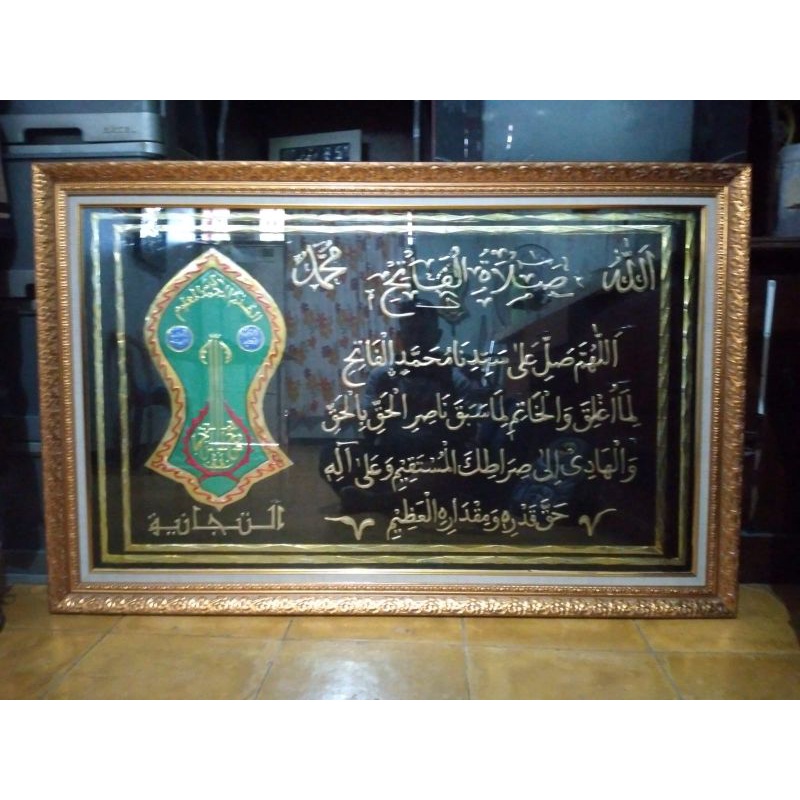 الله
صلاة الفاتح
محمد
اللهم صل على سيدنا محمد الفاتح
لما أغلق والخاتم لما سبق ناصر الحق بالحق
والهادى إلى صراطك المستقيم وعلى آله
حق قدره ومقداره العظيم
التجانية